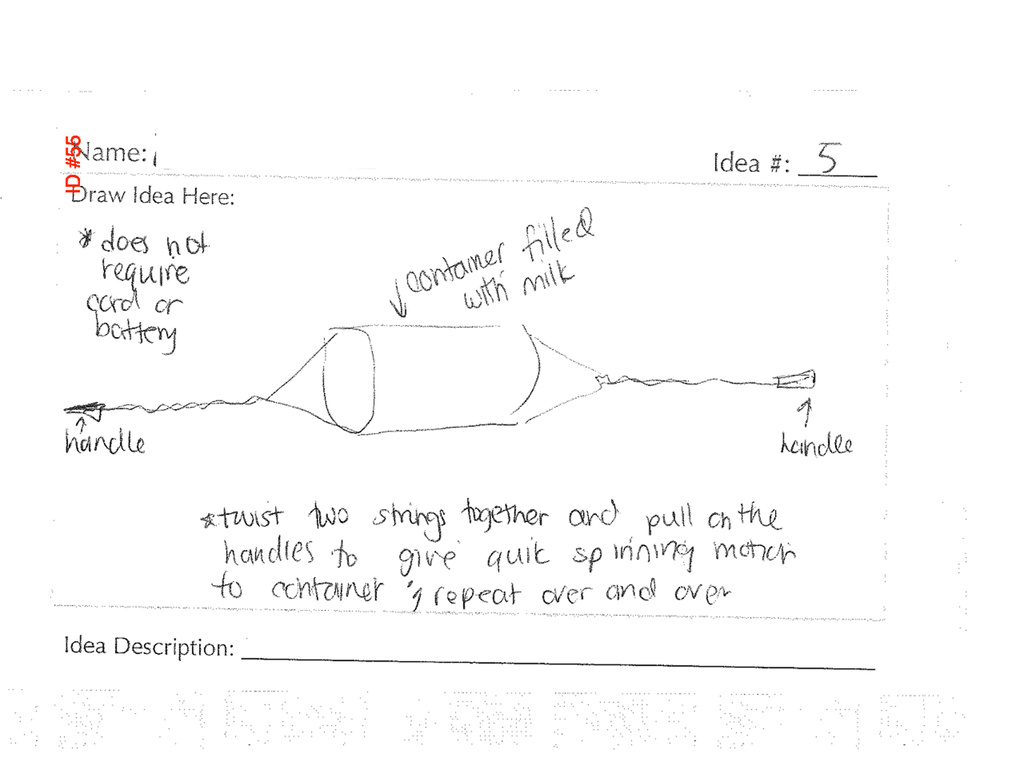 ID #55
Name:
Idea #: 5
Draw Idea Here:
* does not
require
cord or
battery
container filled
with milk
handle
handle
*twist two strings together and pull on the
handles to give quik spinning motion
to container & repeat over and over
Idea Description: